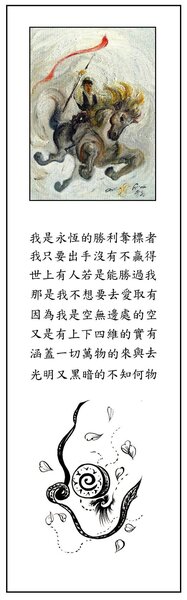 我是永恆的勝利奪標者
我只要出手沒有不贏得
世上有人若是能勝過我
那是我不想要去愛取有
因為我是空無邊處的空
又是有上下四維的實有
涵蓋一切萬物的來與去
光明又黑暗的不知何物